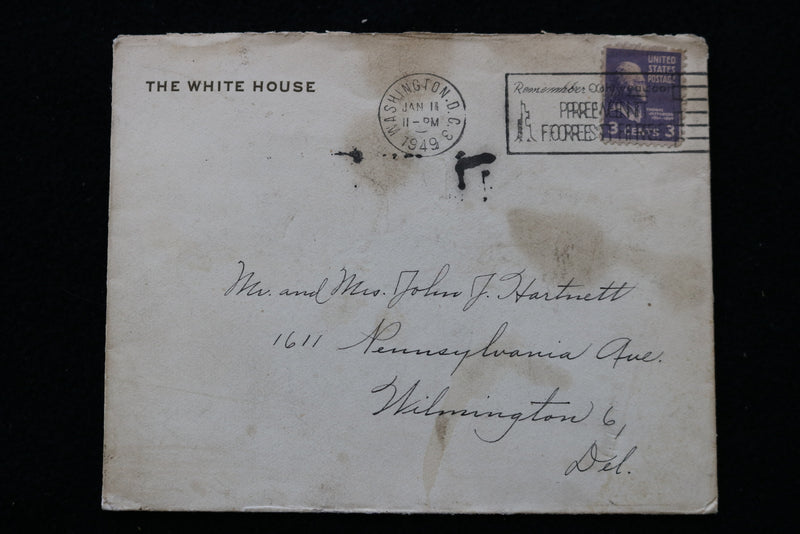 THE WHITE HOUSE
WASHINGTON, D.C. 3
JAN 11
11-PM
1949
Remember
PREVENT
FOREST
UNITED
STATES
POSTAGE
3 CENTS 3
Mr. and Mrs. John J. Hartnett
1611 Pennsylvania Ave.
Wilmington 6,
Del.